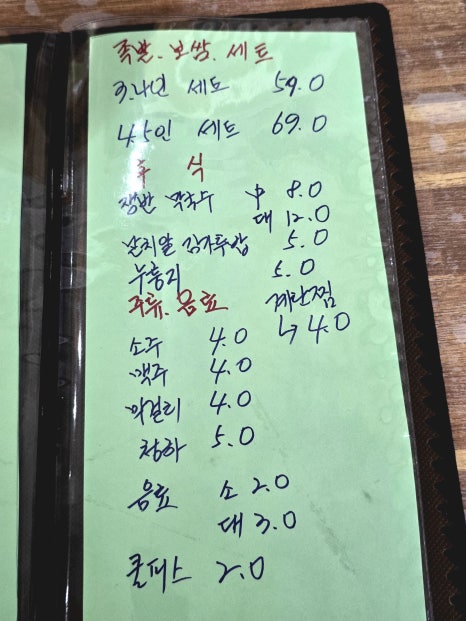 족발. 보쌈. 세트
3.4인 세트 59.0
4.5인 세트 69.0
후 식
쟁반 막국수 中 8.0
대 12.0
날치알 김가루밥 5.0
누룽지 5.0
주류. 음료 계란찜
↳ 4.0
소주 4.0
맥주 4.0
막걸리 4.0
청하 5.0
음료 소 2.0
대 3.0
쿨피스 2.0